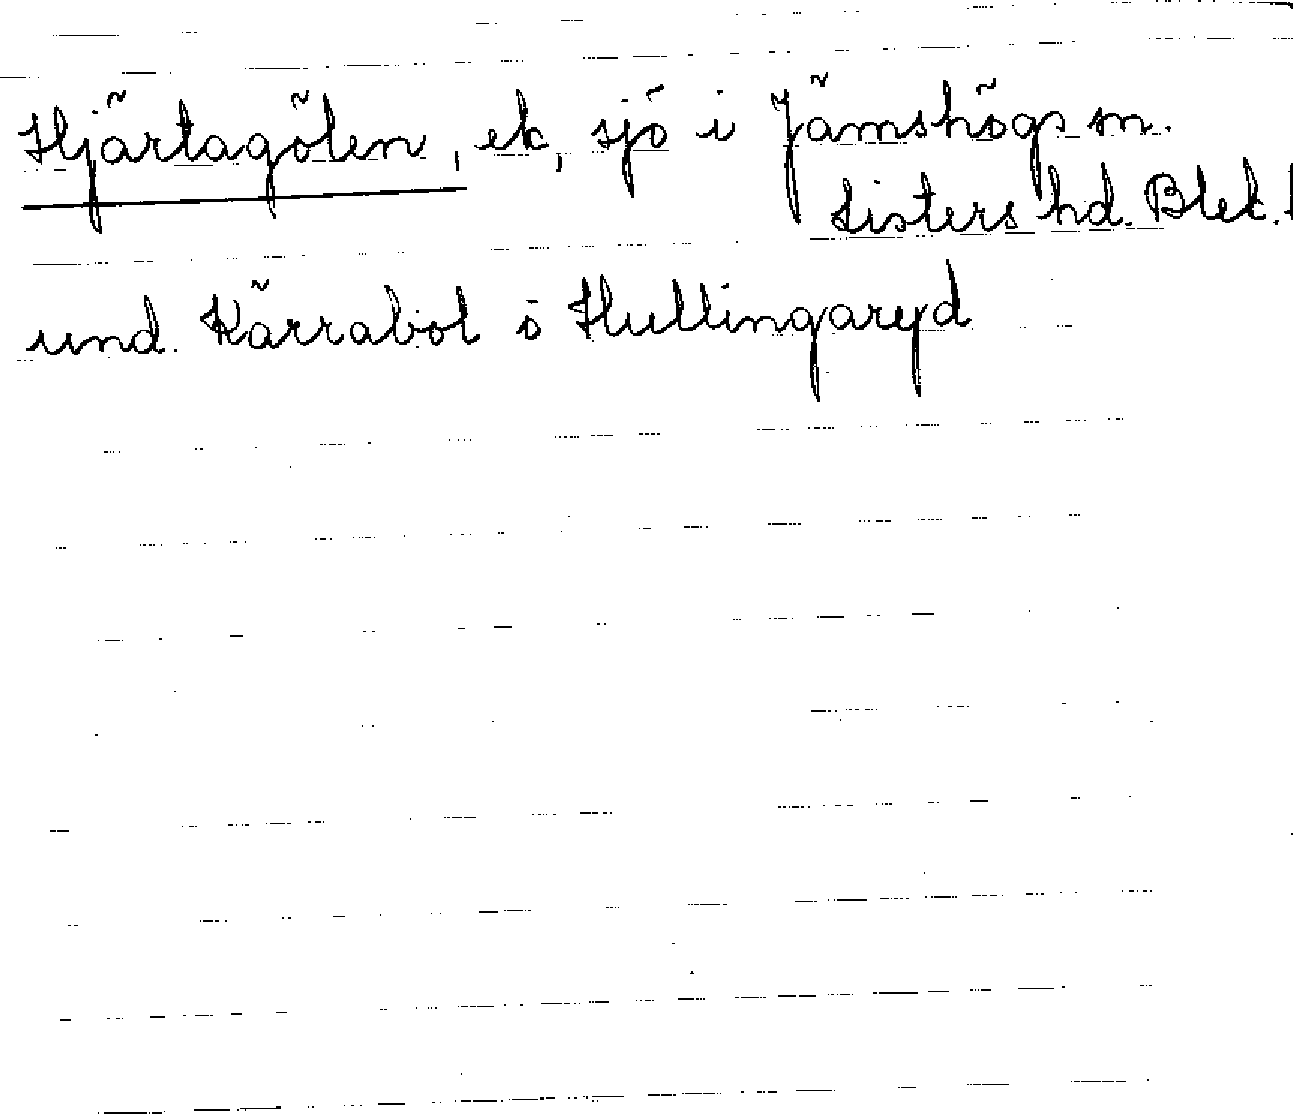 Hjärtagölen, ek, sjö i Jämshögs sn.
Listers hd. Blek. l
und. Kärrabol o Hullingaryd